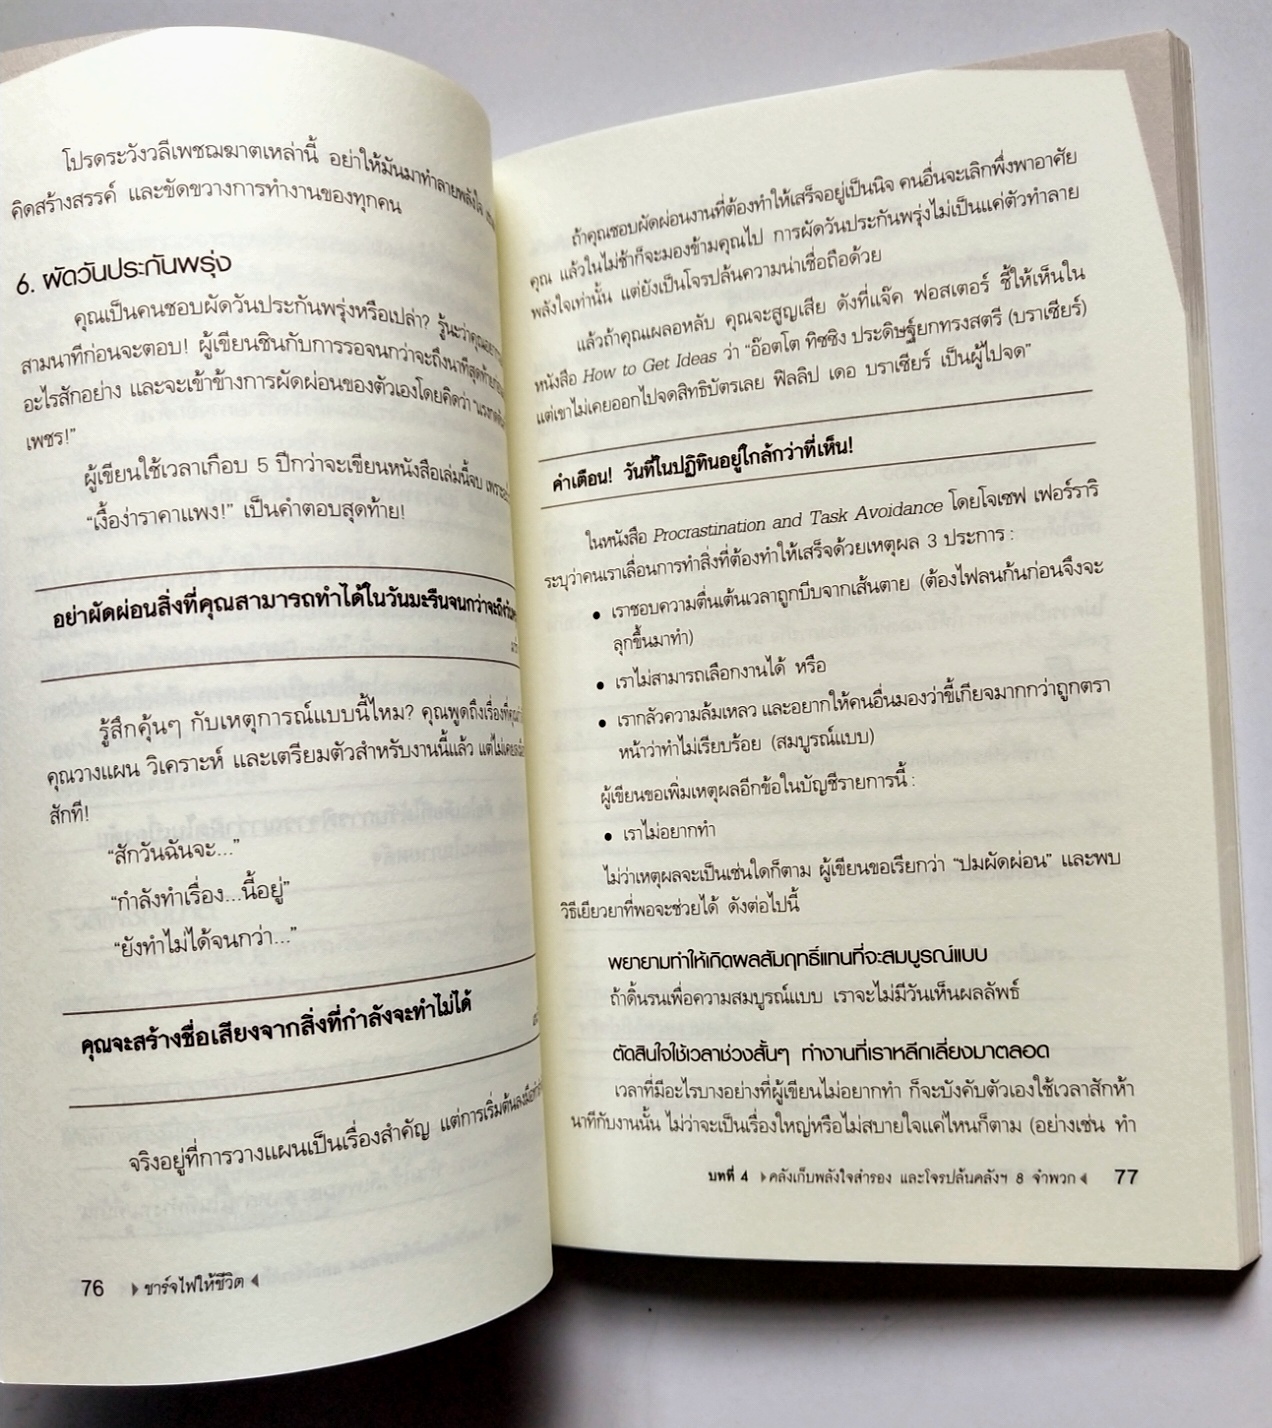 โปรดระวังวลีเพชฌฆาตเหล่านี้ อย่าให้มันมาทำลายพลังใจ
คิดสร้างสรรค์ และขัดขวางการทำงานของทุกคน
6. ผัดวันประกันพรุ่ง
คุณเป็นคนชอบผัดวันประกันพรุ่งหรือเปล่า? รู้นะว่าคุณอยาก
สามนาทีก่อนจะตอบ! ผู้เขียนชินกับการรอจนกว่าจะถึงนาทีสุดท้าย
อะไรสักอย่าง และจะเข้าข้างการผัดผ่อนของตัวเองโดยคิดว่า
เพชร!"
ผู้เขียนใช้เวลาเกือบ 5 ปีกว่าจะเขียนหนังสือเล่มนี้จบ
"เงื้อง่าราคาแพง!" เป็นคำตอบสุดท้าย!
อย่าผัดผ่อนสิ่งที่คุณสามารถทำได้ในวันมะรืนจนกว่าจะถึง
รู้สึกคุ้นๆ กับเหตุการณ์แบบนี้ไหม? คุณพูดถึงเรื่องที่คุณ
คุณวางแผน วิเคราะห์ และเตรียมตัวสำหรับงานนี้แล้ว แต่ไม่เคย
สักที!
"สักวันฉันจะ..."
"กำลังทำเรื่อง...นี้อยู่"
"ยังทำไม่ได้จนกว่า..."
คุณจะสร้างชื่อเสียงจากสิ่งที่กำลังจะทำไม่ได้
จริงอยู่ที่การวางแผนเป็นเรื่องสำคัญ แต่การเริ่มต้นลงมือ
76 ชาร์จไฟให้ชีวิต
ถ้าคุณชอบผัดผ่อนงานที่ต้องทำให้เสร็จอยู่เป็นนิจ คนอื่นจะเลิกพึ่งพาอาศัย
คุณ แล้วในไม่ช้าก็จะมองข้ามคุณไป การผัดวันประกันพรุ่งไม่เป็นแค่ตัวทำลาย
พลังใจเท่านั้น แต่ยังเป็นโจรปล้นความน่าเชื่อถือด้วย
แล้วถ้าคุณเผลอหลับ คุณจะสูญเสีย ดังที่แจ๊ค ฟอสเตอร์ ชี้ให้เห็นใน
หนังสือ How to Get Ideas ว่า "อ๊อตโต ทิซซิง ประดิษฐ์ยกทรงสตรี (บราเซียร์)
แต่เขาไม่เคยออกไปจดสิทธิบัตรเลย ฟิลลิป เดอ บราเซียร์ เป็นผู้ไปจด"
คำเตือน! วันที่ในปฏิทินอยู่ใกล้กว่าที่เห็น!
ในหนังสือ Procrastination and Task Avoidance โดยโจเซฟ เฟอร์ราริ
ระบุว่าคนเราเลื่อนการทำสิ่งที่ต้องทำให้เสร็จด้วยเหตุผล 3 ประการ :
• เราชอบความตื่นเต้นเวลาถูกบีบจากเส้นตาย (ต้องไฟลนก้นก่อนจึงจะ
ลุกขึ้นมาทำ)
• เราไม่สามารถเลือกงานได้ หรือ
• เรากลัวความล้มเหลว และอยากให้คนอื่นมองว่าขี้เกียจมากกว่าถูกตรา
หน้าว่าทำไม่เรียบร้อย (สมบูรณ์แบบ)
ผู้เขียนขอเพิ่มเหตุผลอีกข้อในบัญชีรายการนี้ :
• เราไม่อยากทำ
ไม่ว่าเหตุผลจะเป็นเช่นใดก็ตาม ผู้เขียนขอเรียกว่า "ปมผัดผ่อน" และพบ
วิธีเยียวยาที่พอจะช่วยได้ ดังต่อไปนี้
พยายามทำให้เกิดผลสัมฤทธิ์แทนที่จะสมบูรณ์แบบ
ถ้าดิ้นรนเพื่อความสมบูรณ์แบบ เราจะไม่มีวันเห็นผลลัพธ์
ตัดสินใจใช้เวลาช่วงสั้นๆ ทำงานที่เราหลีกเลี่ยงมาตลอด
เวลาที่มีอะไรบางอย่างที่ผู้เขียนไม่อยากทำ ก็จะบังคับตัวเองใช้เวลาสักห้า
นาทีกับงานนั้น ไม่ว่าจะเป็นเรื่องใหญ่หรือไม่สบายใจแค่ไหนก็ตาม (อย่างเช่น ทำ
บทที่ 4 คลังเก็บพลังใจสำรอง และโจรปล้นคลังฯ 8 จำพวก 77